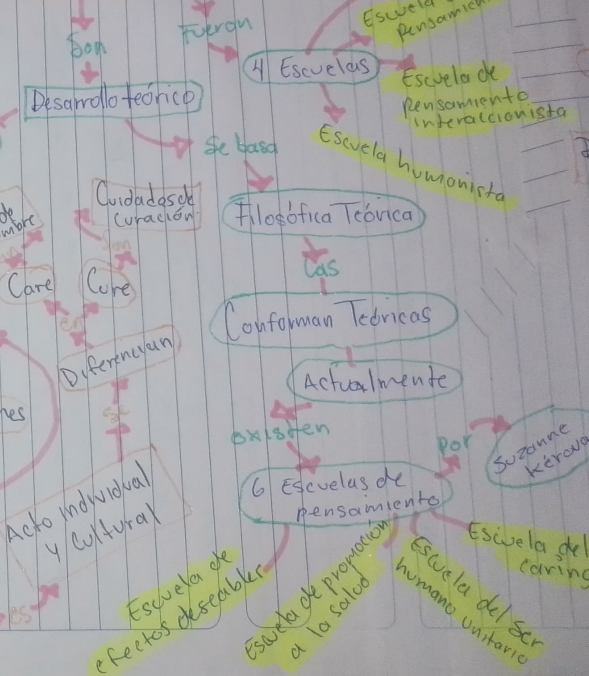 Son
Fueron
Escuela
Pensamien
4 Escuelas
Escuela de
Pensamiento
interaccionista
Desarrollo teórico
Escuela humanista
Se basa
Cuidados de
curación
Filosófica Teórica
de
mbre
Son
Las
Care
Cure
en
Conforman Teóricas
Diferencian
Actualmente
existen
Por
Suzanne
Kérova
nes
Se
6 Escuelas de
pensamiento
Acto individual
y cultural
es
Escuela de
efectos deseables
Escuela de promoción
a la salud
Escuela del ser
humano unitario
Escuela del
caring